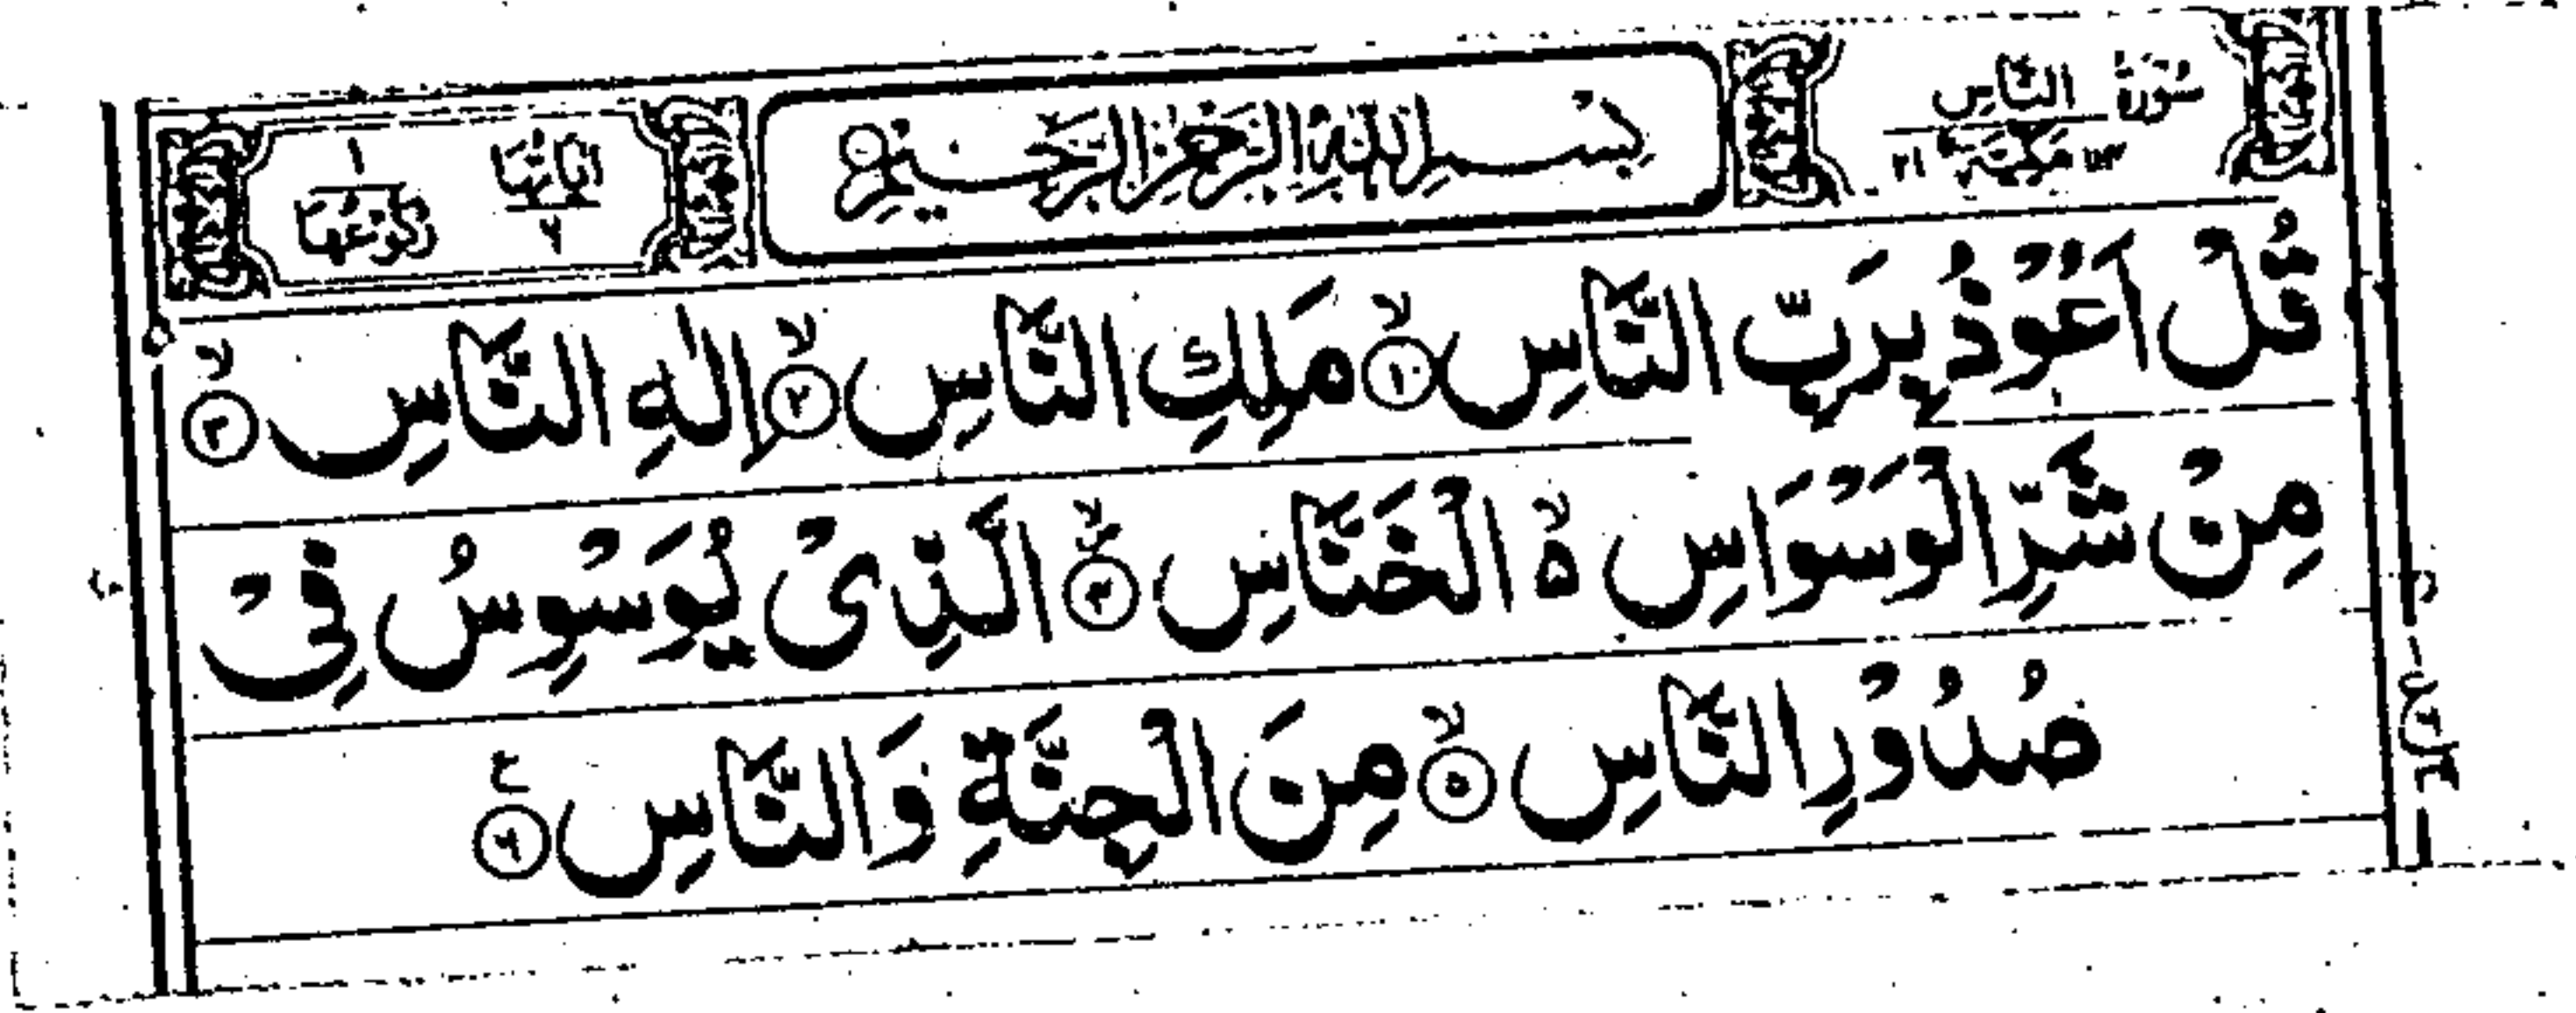 سُوْرَةُ النَّاسِ مَكِّيَّةٌ ٢١ بِسْمِ اللّٰهِ الرَّحْمٰنِ الرَّحِيْمِ اٰيَاتُهَا ٦ رُكُوْعُهَا ١
قُلْ اَعُوْذُ بِرَبِّ النَّاسِ ۙ﴿١﴾ مَلِكِ النَّاسِ ۙ﴿٢﴾ اِلٰهِ النَّاسِ ۙ﴿٣﴾
مِنْ شَرِّ الْوَسْوَاسِ ۵ۙ الْخَنَّاسِ ۙ﴿٤﴾ الَّذِىْ يُوَسْوِسُ فِىْ
صُدُوْرِ النَّاسِ ۙ﴿٥﴾ مِنَ الْجِنَّةِ وَالنَّاسِ ﴿٦﴾ ع